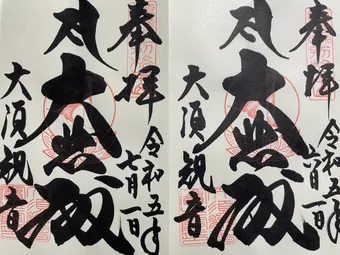 奉拝
令和五年
七月一日
大悲殿
大須観音
奉拝
令和五年
六月一日
大悲殿
大須観音